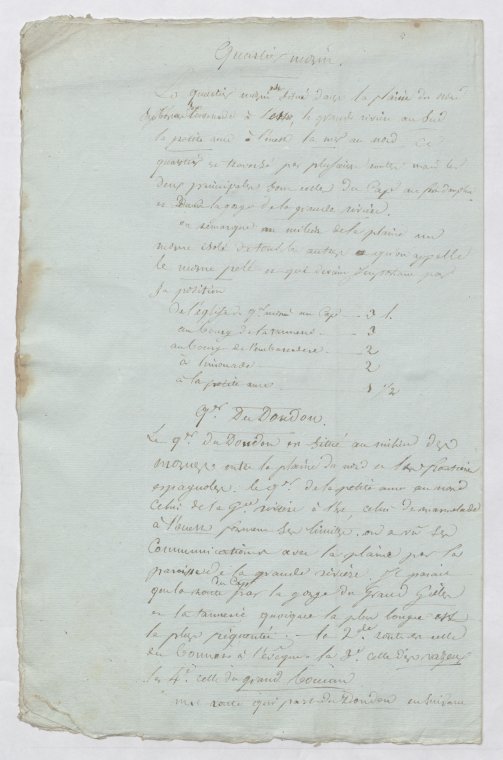 Quartier morin.
Le quartier morin est situé dans la plaine du nord
limonade à l'est la grande rivière au sud
la petite anse à l'ouest la mer au nord. Ce
quartier se traverse par plusieurs routes mais les
deux principales sont celle du Cap au
et dans la gorge de la grande rivière.
on remarque au milieu de la plaine un
morne isolé de tous les autres qu'on appelle
le morne pelé ce qui devient important par
sa position
de l'église du q.er morin au Cap — 3 l.
au bourg de la tannerie — 3
au bourg de l'embarcadère — 2
à limonade 2
à la petite anse. — 1 1/2
Q.er Du Dondon.
Le q.er du Dondon est situé au milieu des
mornes entre la plaine du nord et les
espagnoles. le q.er de la petite anse au nord
celui de la G.de rivière à l'est, celui de marmelade
à l'ouest forment ses limites. on a vu ses
Communications avec la plaine par la
paroisse de la grande rivière. Il parait
que la route du Cap par la gorge du Grand Gilles
et la tannerie quoique la plus longue est
la plus fréquentée. — la 2.de route est celle
du bonnet à l'évêque la 3.e celle des
la 4.e celle du grand Boucan
une route qui part du Dondon en suivant